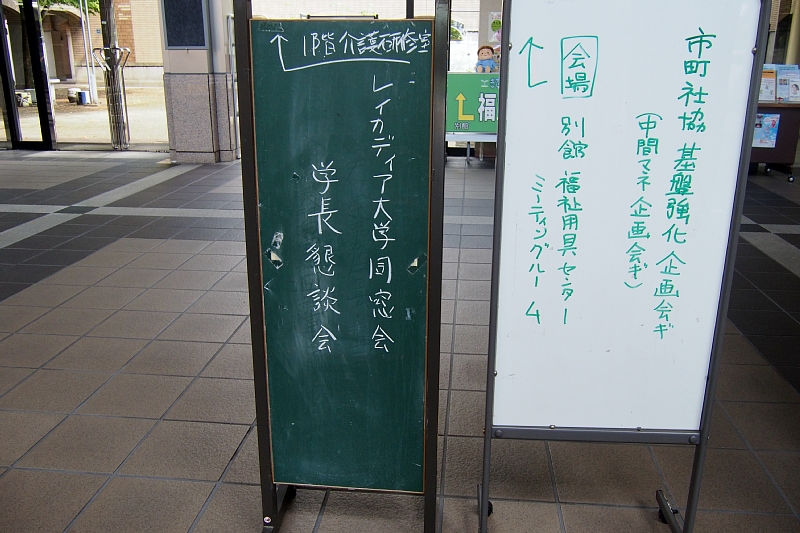 1階 介護研修室
レイカディア大学同窓会
学長懇談会
市町社協 基盤強化 企画会ギ
(中間マネ企画会ギ)
会場
別館 福祉用具センター
ミーティングルーム
福
別館